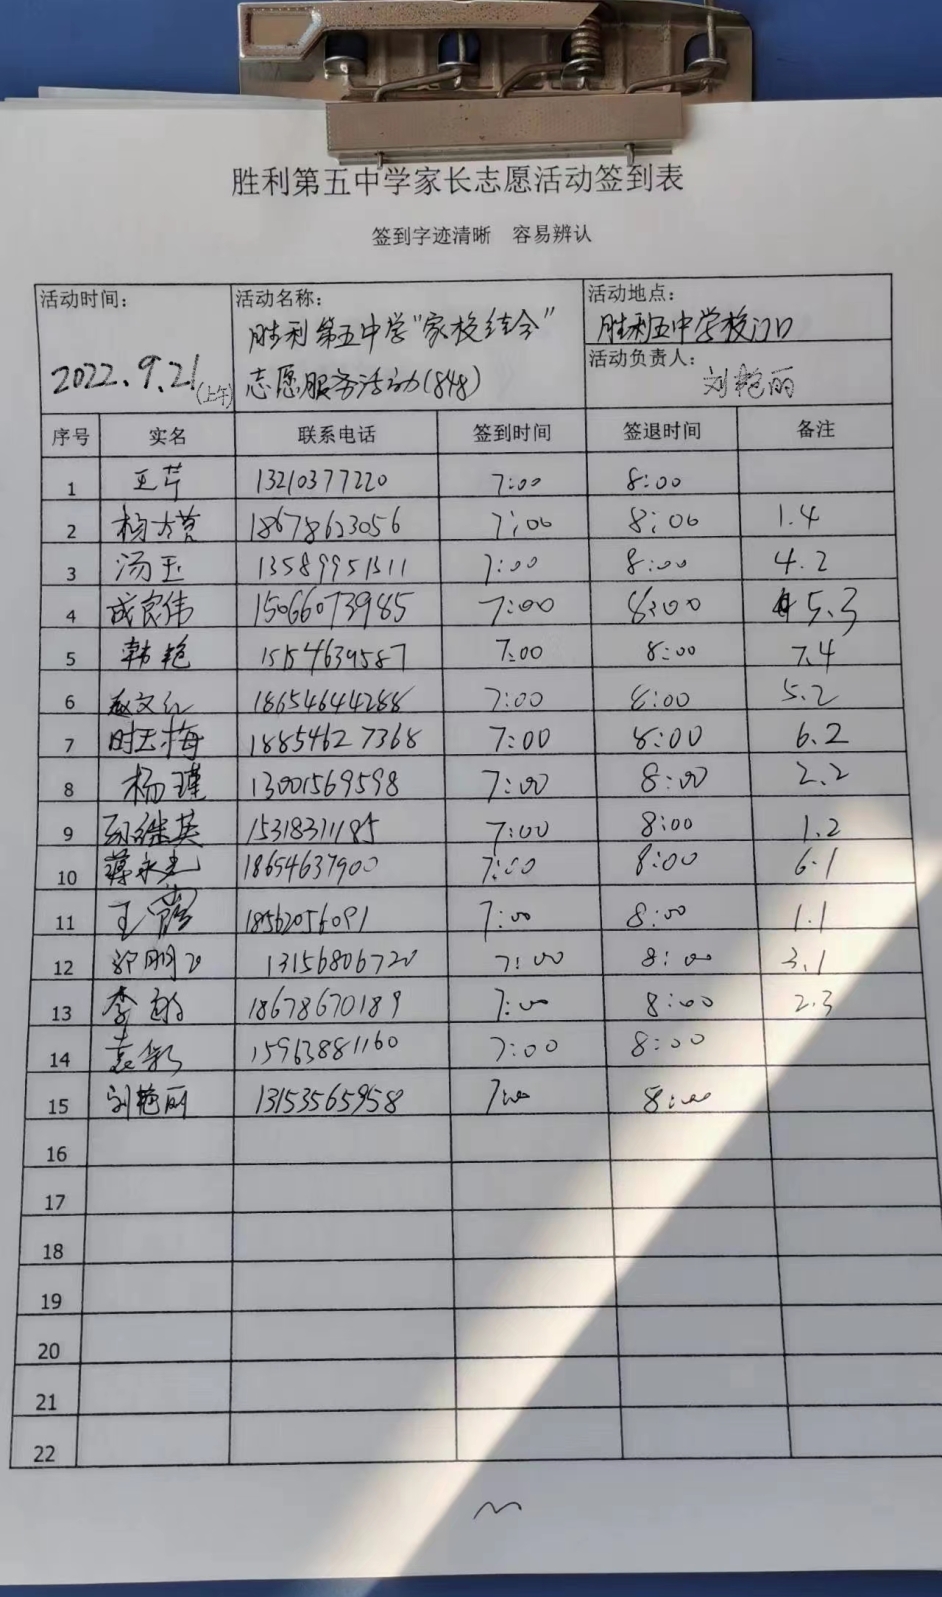 胜利第五中学家长志愿活动签到表
签到字迹清晰 容易辨认
活动时间: 活动名称: 活动地点:
胜利第五中学“家校结合” 胜利五中学校门口
活动负责人:
2022.9.21(上午) 志愿服务活动(848) 刘艳丽
序号 实名 联系电话 签到时间 签退时间 备注
1 王芹 13210377220 7:00 8:00
2 18678623056 7:00 8:00 1.4
3 汤玉 13589951311 7:00 8:00 4.2
4 成家伟 15066073985 7:00 8:00 5.3
5 韩艳 15154639587 7:00 8:00 7.4
6 赵文红 18654644288 7:00 8:00 5.2
7 时玉梅 18854627368 7:00 8:00 6.2
8 杨瑾 13001569598 7:00 8:00 2.2
9 孙继英 15318311185 7:00 8:00 1.2
10 蒋永光 18654637900 7:00 8:00 6.1
11 王霞 18562056091 7:00 8:00 1.1
12 13156806720 7:00 8:00 3.1
13 李敏 18678670189 7:00 8:00 2.3
14 袁彩 15963881160 7:00 8:00
15 刘艳丽 13153565958 7:00 8:00
16
17
18
19
20
21
22